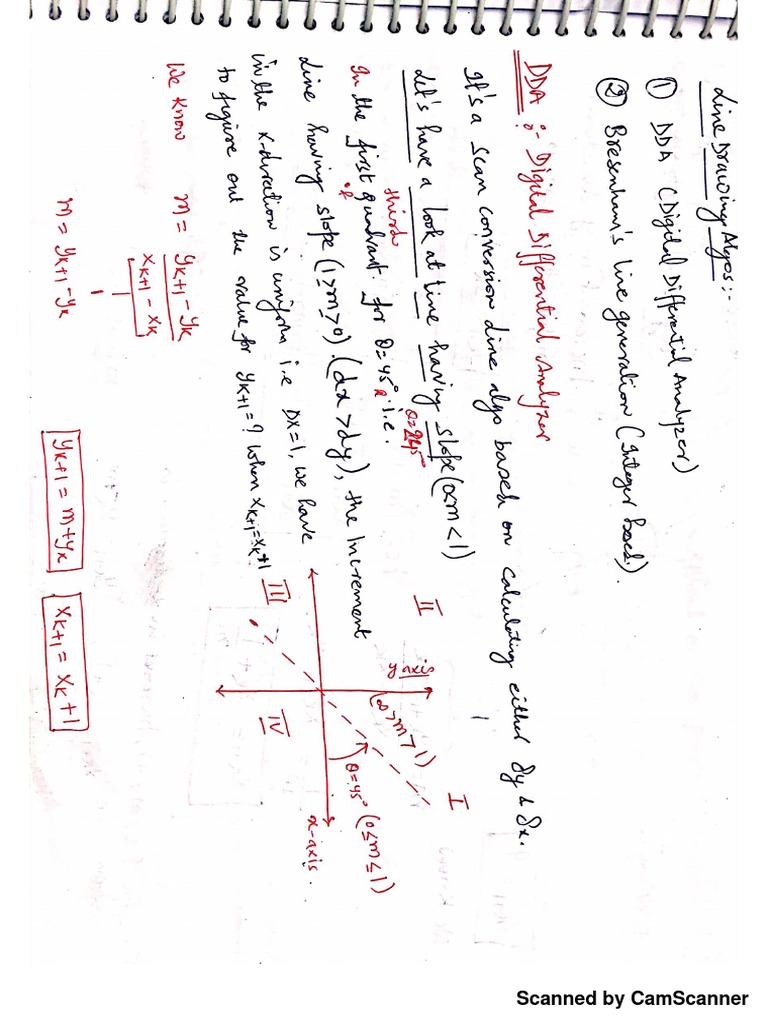 Line Drawing Algos:-
① DDA (Digital Differential Analyzer)
② Bresenham's line generation (Integer based).
DDA :- Digital Differential Analyzer
It's a scan conversion line algo based on calculating either δy & δx.
Let's have a look at line having slope (0<m<1)
third θ=225°
In the first quadrant for θ=45° i.e.
Line having slope (1≥m≥0). (dx>dy), the increment
in the x-duration is uniform i.e DX=1, we have
to figure out the value for yk+1=? when xk+1=xk+1
We know m = yk+1 - yk
xk+1 - xk
1
m = yk+1 - yk
yk+1 = m+yk
xk+1 = xk+1
II
I
III
IV
y axis
(∞>m>1)
θ=45° (0≤m≤1)
x-axis.
Scanned by CamScanner